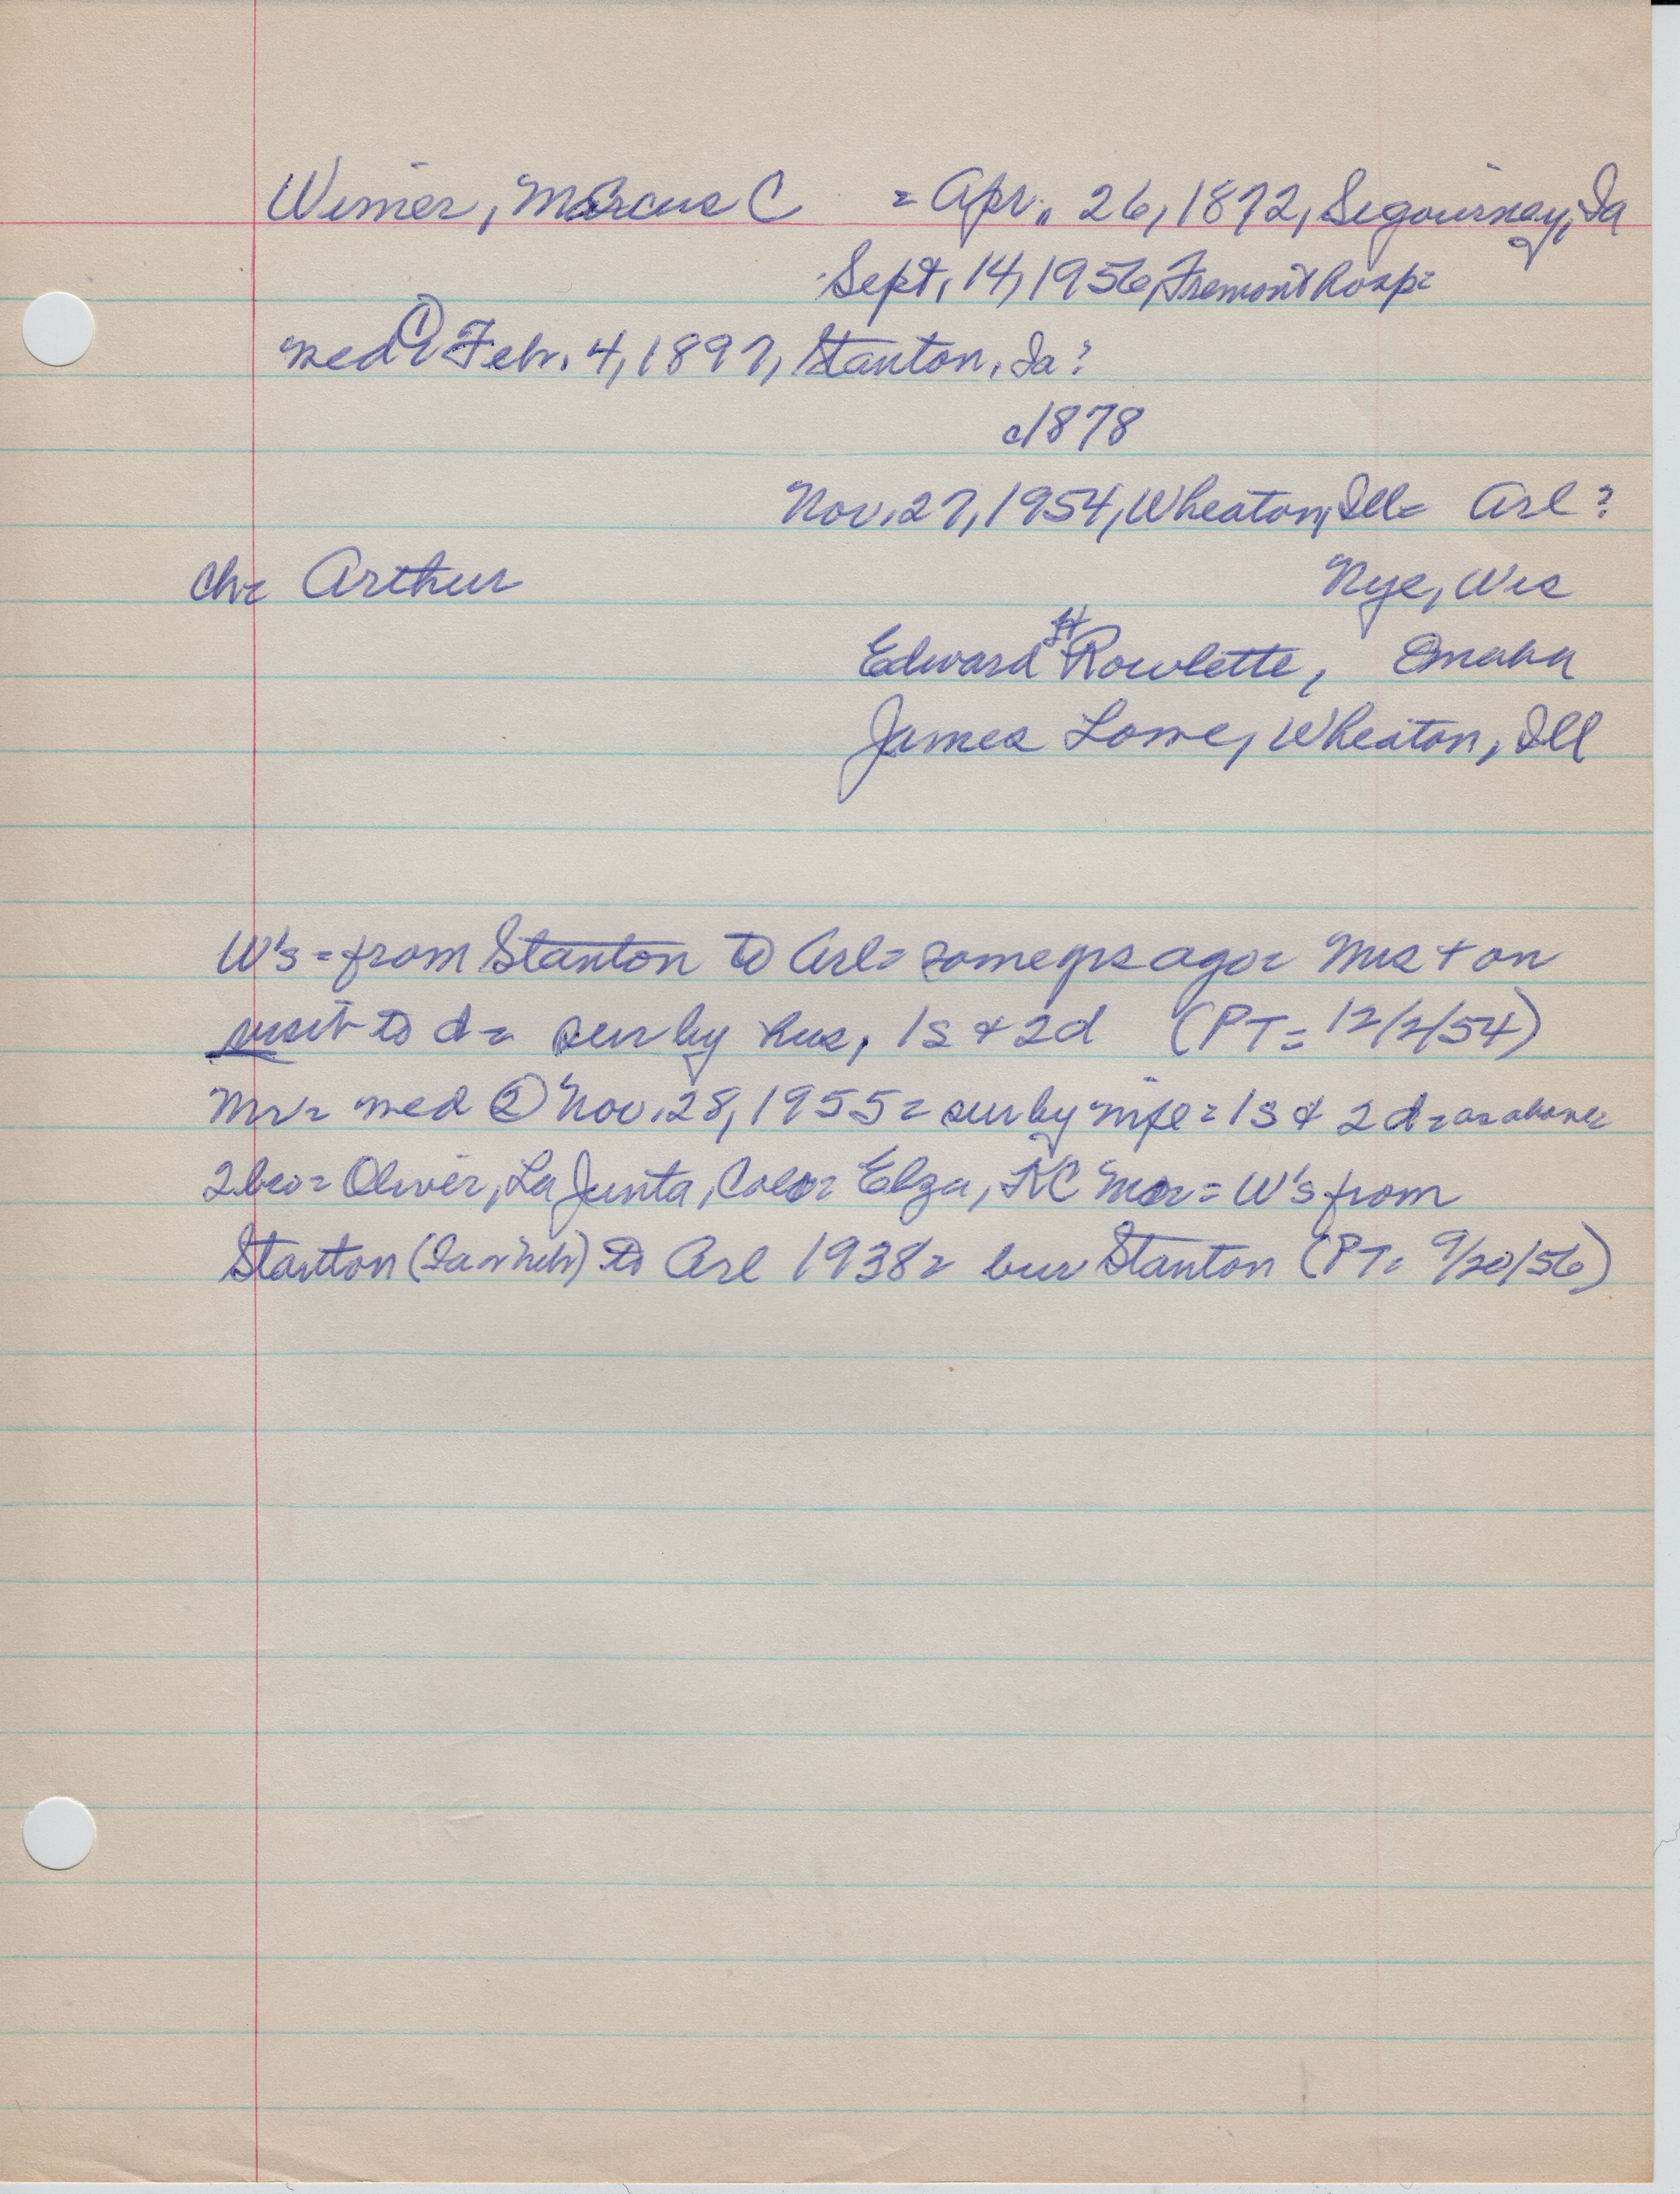 Wimer, Marcus C = Apr. 26, 1872, Segourney, Ia
Sept. 14, 1956, Fremont hosp=
med ① Febr. 4, 1897, Stanton, Ia?
c1878
Nov. 27, 1954, Wheaton, Ill= Arl?
Ch= Arthur
Nye, Wis
Edward H Rowlette, Omaha
James Lowe, Wheaton, Ill
W's = from Stanton to Arl= some yrs ago= Mrs + on
visit to d= sur by hus, 1s & 2d (PT= 12/2/54)
Mr= med ② Nov. 28, 1955= sur by wife= 1s & 2d= as above=
2 bro= Oliver, La Junta, Colo= Elza, KC Mo= W's from
Stanton (Ia or Neb) to Arl 1938= bur Stanton (PT= 9/20/56)